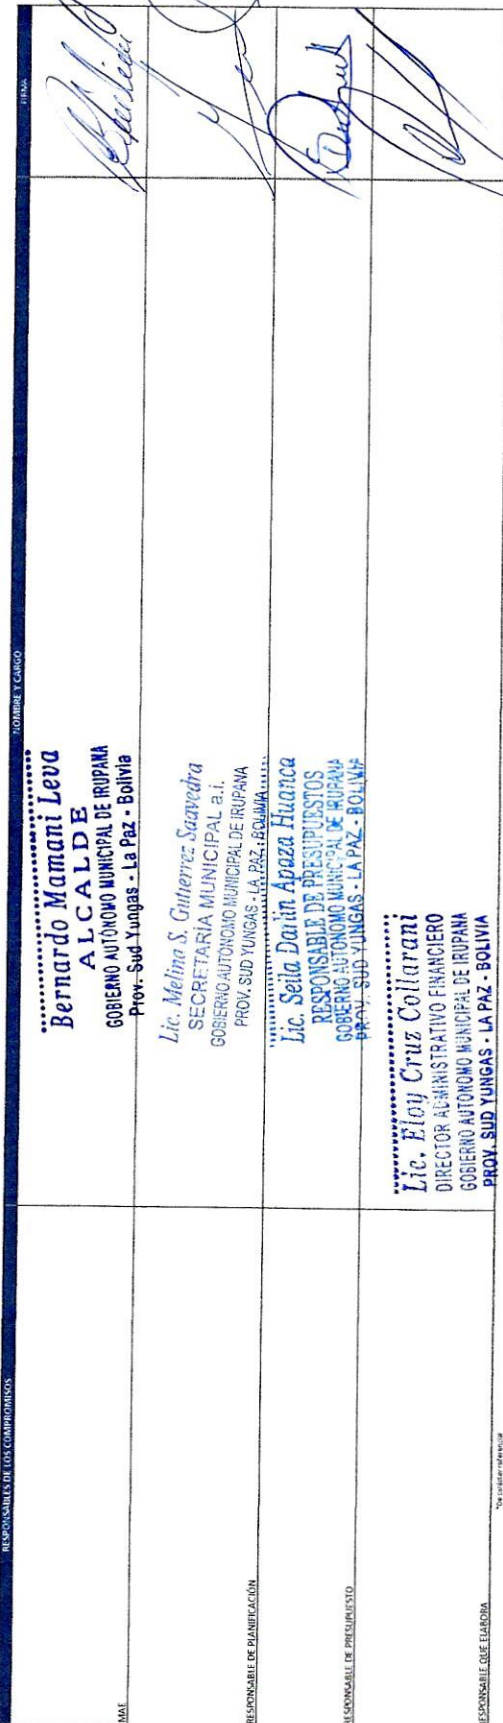 RESPONSABLES DE LOS COMPROMISOS
NOMBRE Y CARGO
FIRMA
MAE
Bernardo Mamani Leva
ALCALDE
GOBIERNO AUTÓNOMO MUNICIPAL DE IRUPANA
Prov. Sud Yungas - La Paz - Bolivia
RESPONSABLE DE PLANIFICACIÓN
Lic. Melina S. Gutierrez Saavedra
SECRETARIA MUNICIPAL a.i.
GOBIERNO AUTONOMO MUNICIPAL DE IRUPANA
PROV. SUD YUNGAS - LA PAZ - BOLIVIA
RESPONSABLE DE PRESUPUESTO
Lic. Seila Dailin Apaza Huanca
RESPONSABLE DE PRESUPUESTOS
GOBIERNO AUTONOMO MUNICIPAL DE IRUPANA
PROV. SUD YUNGAS - LA PAZ - BOLIVIA
RESPONSABLE QUE ELABORA
Lic. Eloy Cruz Collarani
DIRECTOR ADMINISTRATIVO FINANCIERO
GOBIERNO AUTONOMO MUNICIPAL DE IRUPANA
PROV. SUD YUNGAS - LA PAZ - BOLIVIA
*De carácter referencial